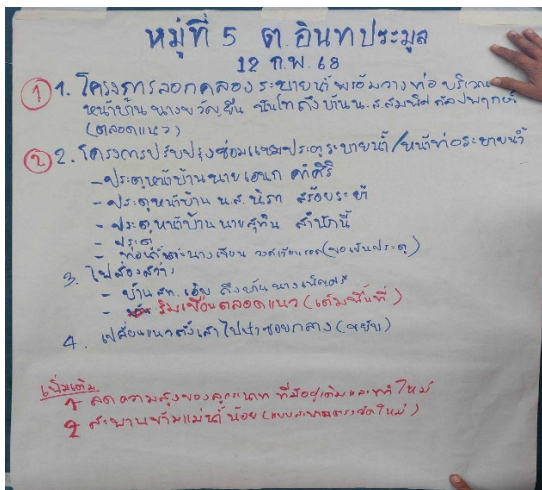 หมู่ที่ 5 ต.อินทประมูล
12 ก.พ. 68
① 1. โครงการลอกคลองระบายน้ำพร้อมวางท่อ บริเวณ
หน้าบ้านนางขวัญยืน ถึงบ้าน น.ส.สมพิศ
(ตลอดแนว)
② 2. โครงการปรับปรุงซ่อมแซมประตูระบายน้ำ/หน้าท่อระบายน้ำ
- ประตูหน้าบ้านนายเอนก คำศิริ
- ประตูหน้าบ้าน น.ส.นิรา สร้อยระย้า
- ประตูหน้าบ้านนายสุทิน สำนักนี้
- ประตู
- นางเสงี่ยม (ขอเป็นประตู)
3. ไฟส่องสว่าง
- บ้าน สท. เอ๋ย ถึงบ้านนาง
- ริมเขื่อนตลอดแนว (เต็มพื้นที่)
4. เปลี่ยนแนวตั้งเสาไฟฟ้าซอยกลาง (ขยับ)
เพิ่มเติม
1 ลดความสูงของลูกระนาด ที่มีอยู่เดิมและทำใหม่
2 สะพานข้ามแม่น้ำน้อย